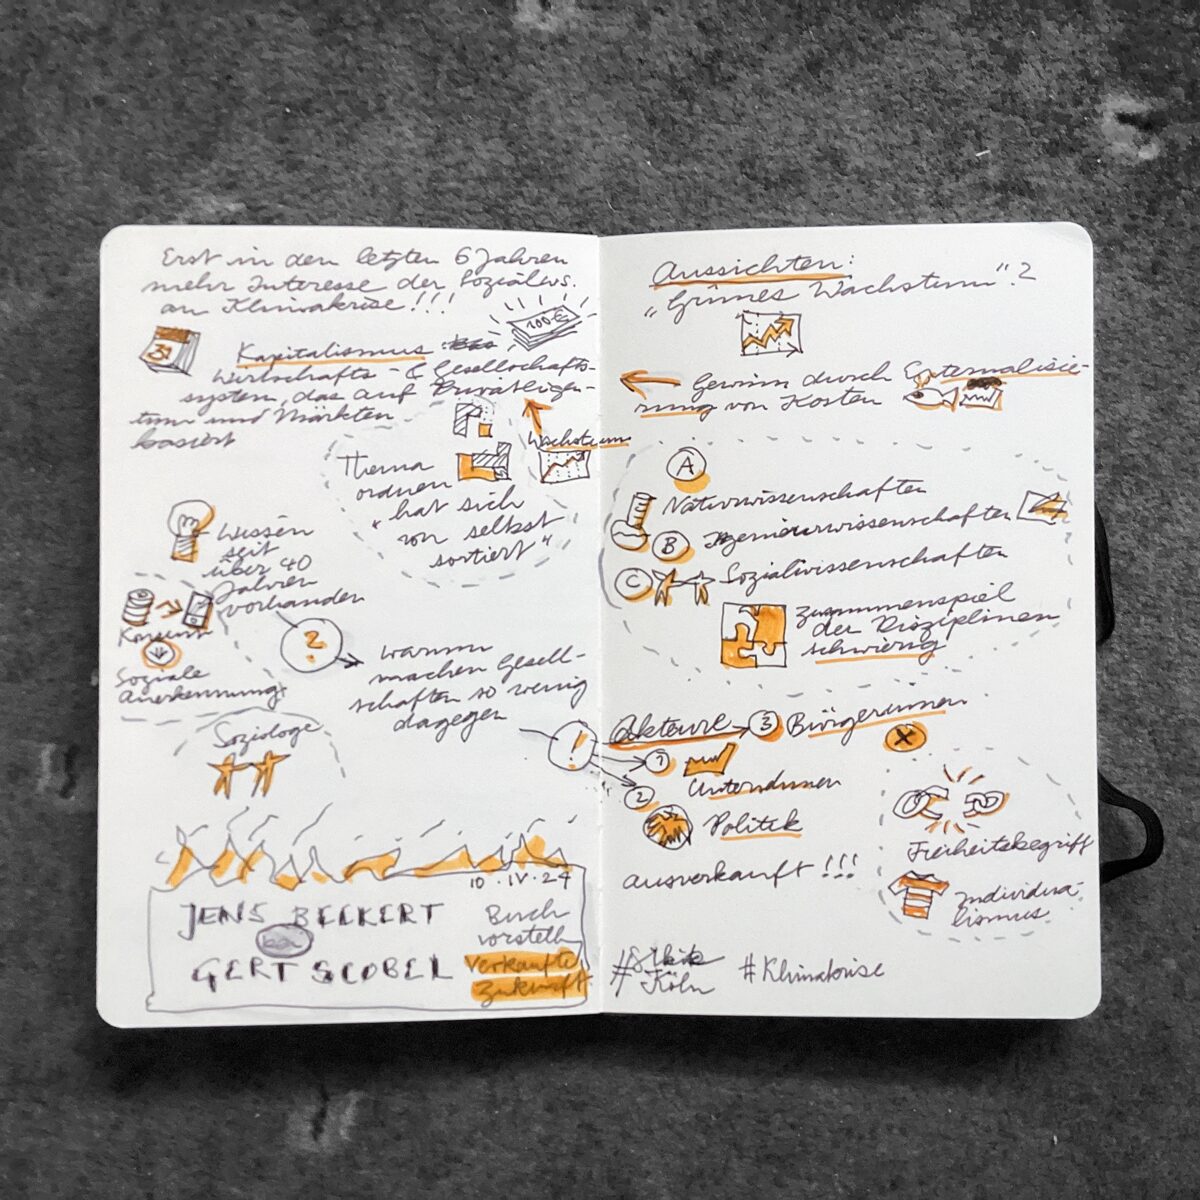 Erst in den letzten 6 Jahren
mehr Interesse der Sozialws.
an Klimakrise!!!
100 €
31
Kapitalismus:
Wirtschafts- & Gesellschafts-
system, das auf Privateigen-
tum und Märkten
basiert
Wachstum
Thema
ordnen
"hat sich
von selbst
sortiert"
Wissen
seit
über 40
Jahren
vorhanden
Konsum
Soziale
Anerkennung
?
warum
machen Gesell-
schaften so wenig
dagegen
Soziologe
10.IV.24
JENS BECKERT
GERT SCOBEL
Buch
vorstell
Verkaufte
Zukunft
Aussichten:
"Grünes Wachstum"?
Gewinn durch Externalisie-
rung von Kosten
A
Naturwissenschaften
B Ingenieurwissenschaften
C Sozialwissenschaften
Zusammenspiel
der Disziplinen
schwierig
!
Akteure
3 Bürgerinnen
x
1
Unternehmen
2
Politik
ausverkauft!!!
Freiheitsbegriff
Individua-
lismus
#
Köln
#Klimakrise